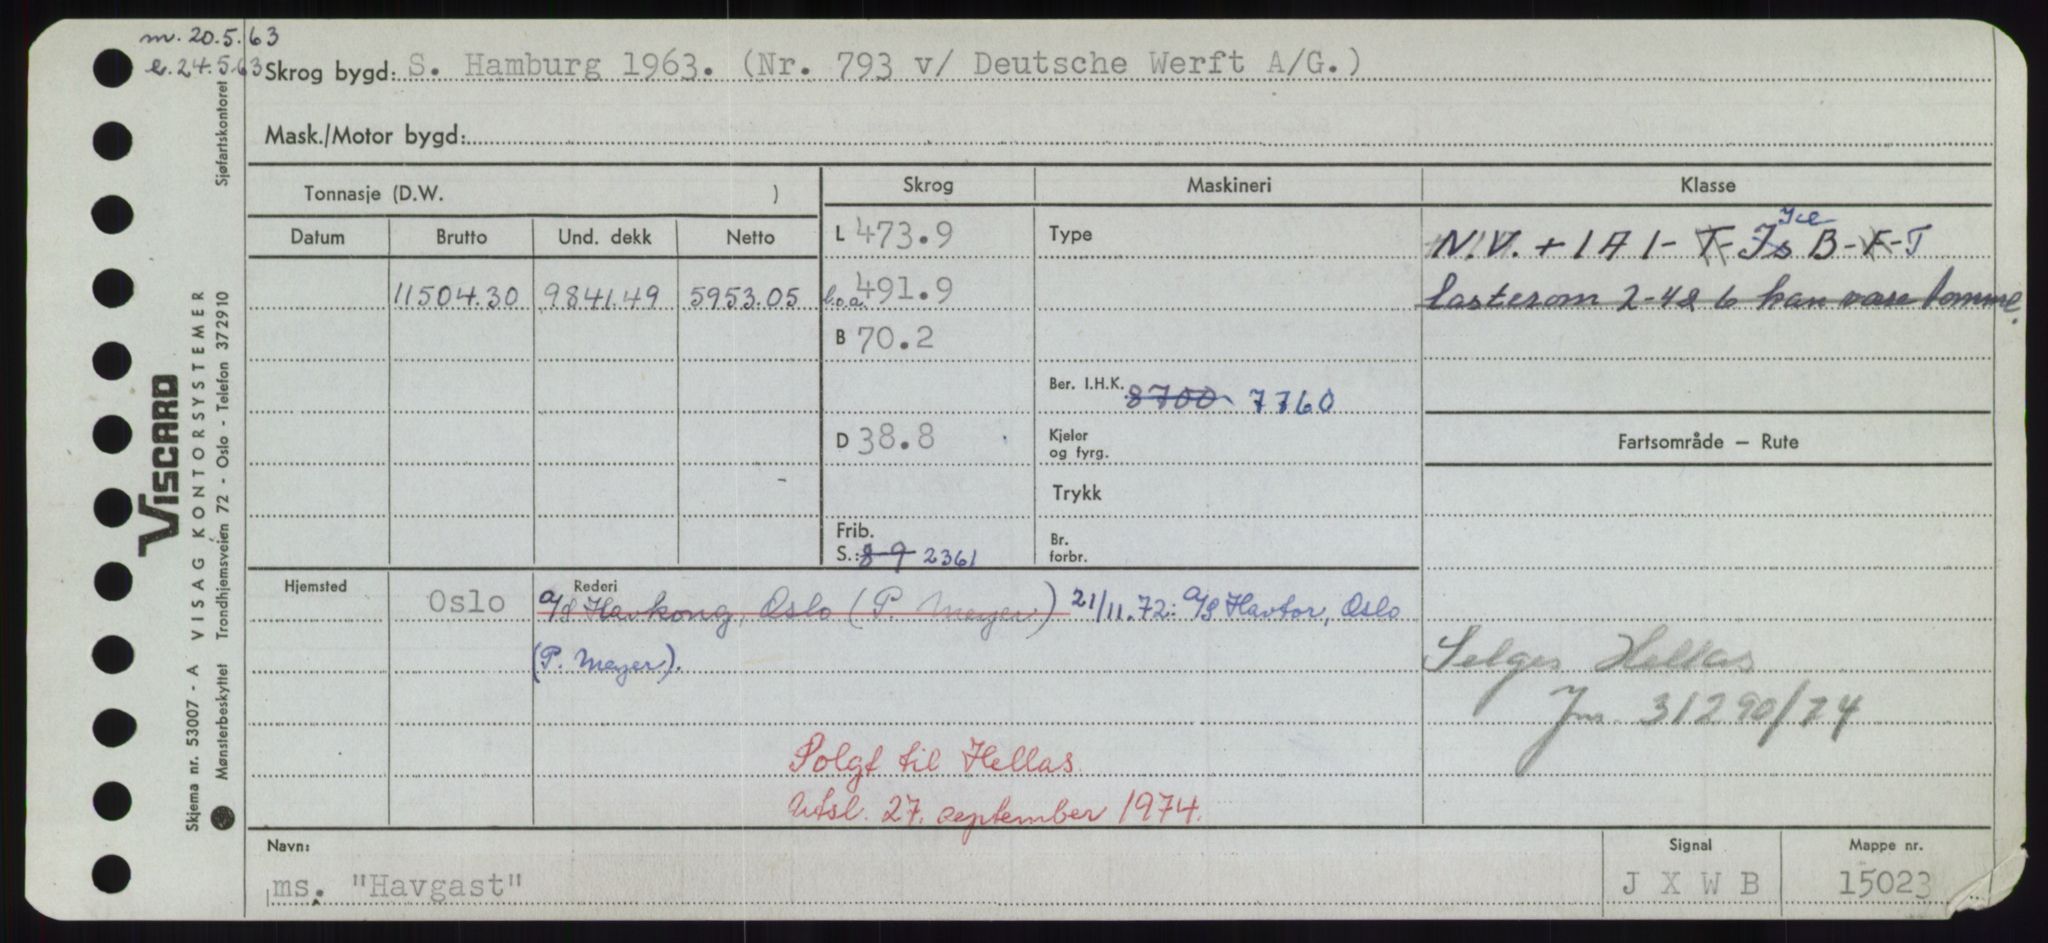 m. 20.5.63
e. 24.5.63
Skrog bygd: S. Hamburg 1963. (Nr. 793 v/ Deutsche Werft A/G.)
Mask./Motor bygd:
Tonnasje (D.W. )
Skrog
Maskineri
Klasse
Datum
Brutto
Und. dekk
Netto
L 473.9
Type
Ice
N.V. + 1A1 - T - Is B - F - T
11504.30 9841.49 5953.05
l.o.a. 491.9
Lasterom 2-4 & 6 kan være tomme.
B 70.2
Ber. I.H.K. 8700 7760
D 38.8
Kjeler
og fyrg.
Fartsområde – Rute
Trykk
Frib.
S.: 8-9 2361
Br.
forbr.
Hjemsted
Oslo
Rederi
A/S Havkong, Oslo (P. Meyer) 21/11.72: A/S Havtor, Oslo
(P. Meyer).
Selges Hellas
Jnr. 31290/74
Solgt til Hellas.
Utsl. 27. september 1974.
Navn:
ms. "Havgast"
Signal
J X W B
Mappe nr.
15023
VISCARD
Skjema nr. 53007 - A VISAG KONTORSYSTEMER
Mønsterbeskyttet Trondhjemsveien 72 - Oslo - Telefon 372910 Sjøfartskontoret